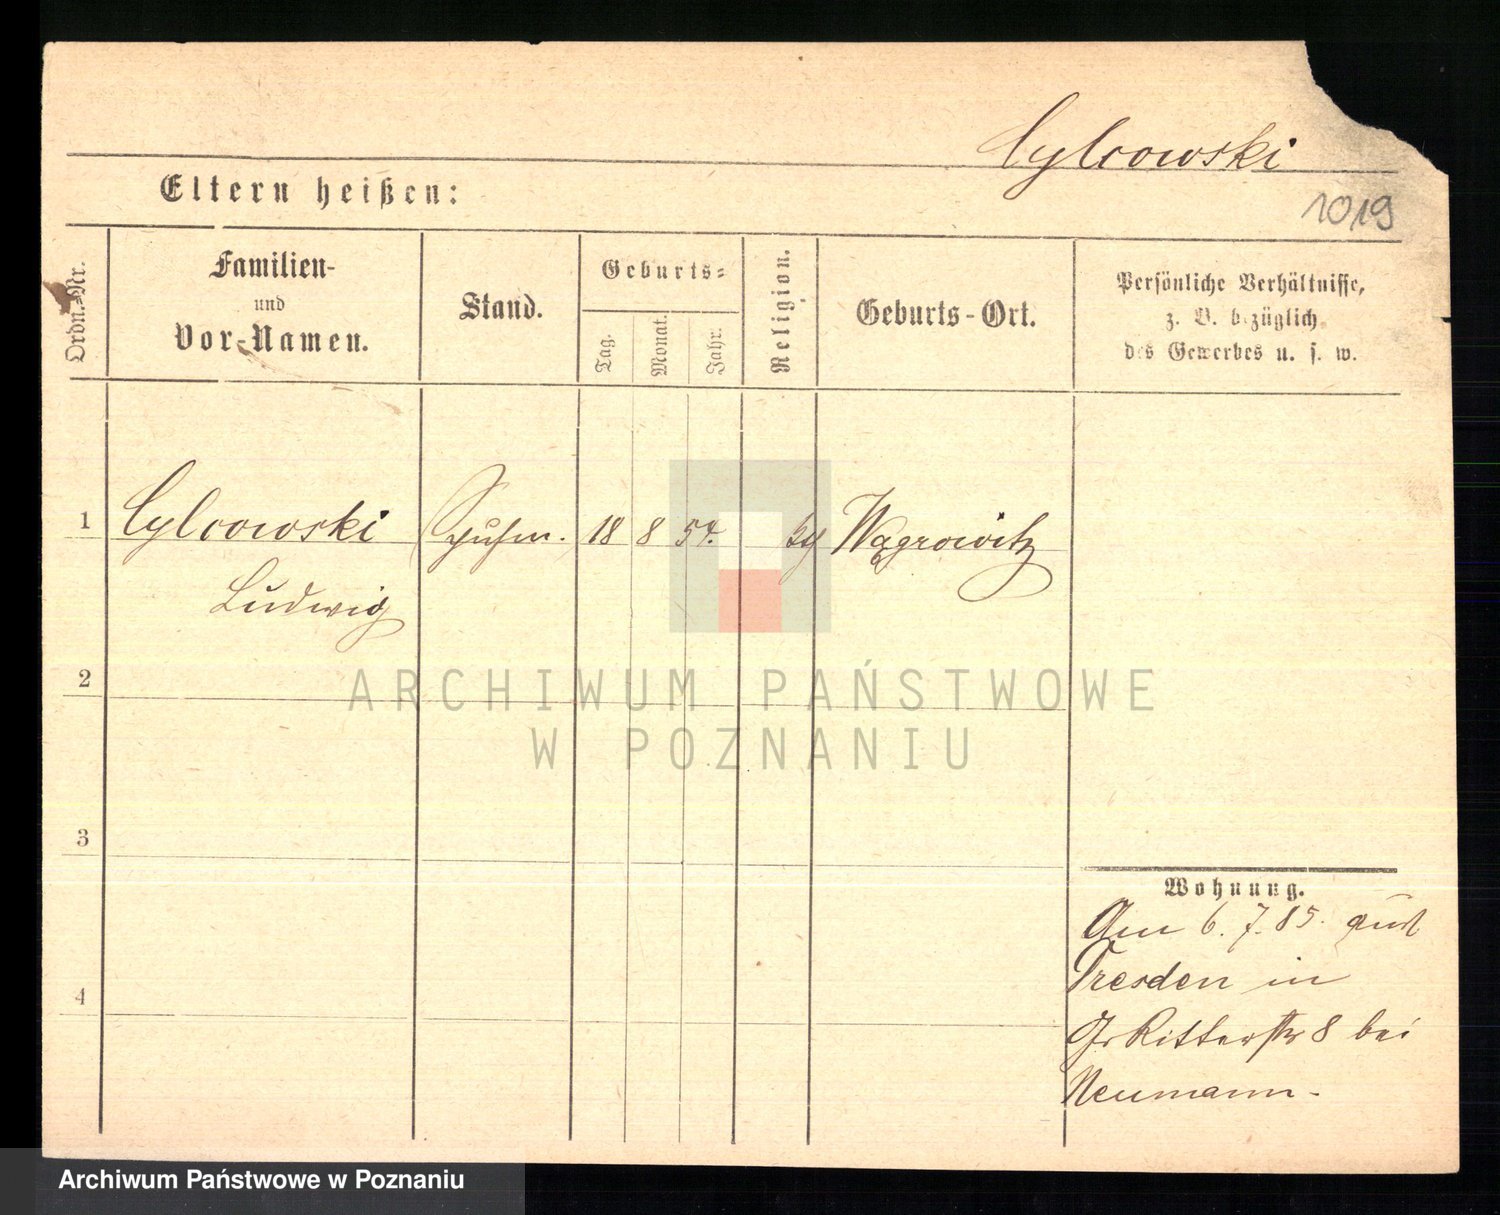 Cylcowski
1019
Eltern heißen:
Ordn.-Nr.
Familien-
und
Vor-Namen.
Stand.
Geburts-
Tag.
Monat.
Jahr.
Religion.
Geburts-Ort.
Persönliche Verhältnisse,
z. B. bezüglich
des Gewerbes u. s. w.
1 Cylcowski 18 8 54. Wągrowitz
Ludwig
2
3
4
Wohnung.
Am 6. 7. 85. aus
Dresden in
Gr Ritterstr 8 bei
Neumann.
ARCHIWUM PAŃSTWOWE
W POZNANIU
Archiwum Państwowe w Poznaniu